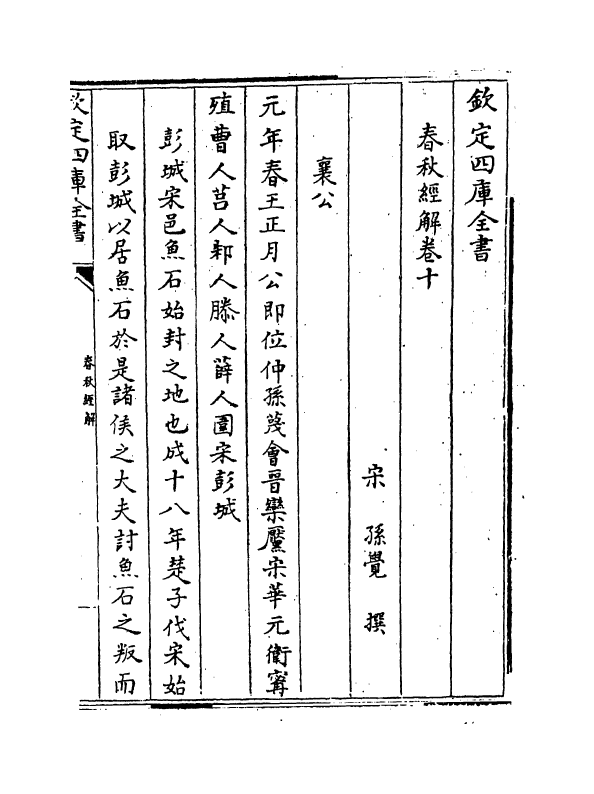 欽定四庫全書
春秋經解卷十
宋　孫覺　撰
襄公
元年春王正月公即位仲孫蔑會晉欒黶宋華元衛甯
殖曹人莒人邾人滕人薛人圍宋彭城
彭城宋邑魚石始封之地也成十八年楚子伐宋始
取彭城以居魚石於是諸侯之大夫討魚石之叛而
欽定四庫全書
春秋經解